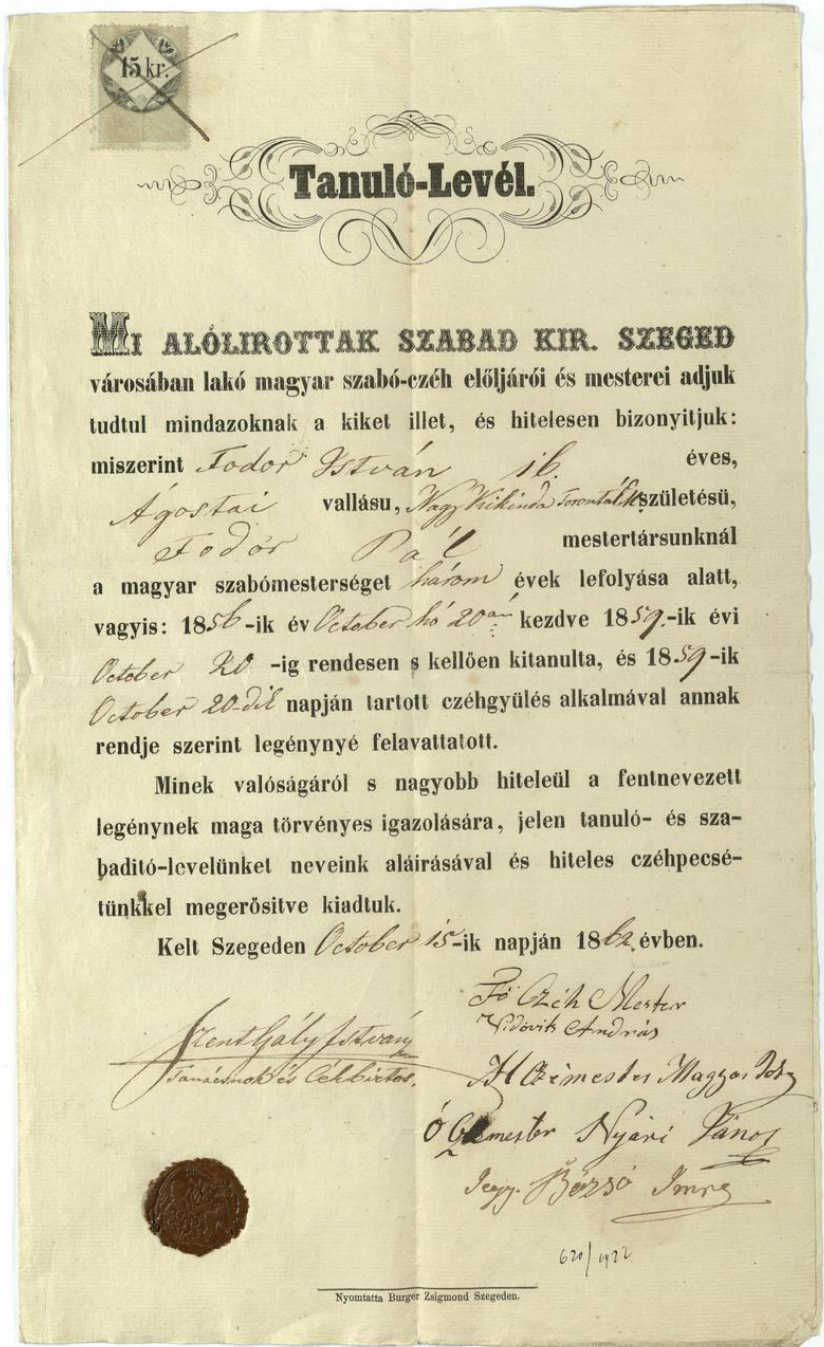 15 kr.
Tanuló-Levél.
MI ALÓLIROTTAK SZABAD KIR. SZEGED
városában lakó magyar szabó-czéh előljárói és mesterei adjuk
tudtul mindazoknak a kiket illet, és hitelesen bizonyitjuk:
miszerint Fodor István 16. éves,
Ágostai vallásu, Nagy Kikinda születésü,
Fodor Pál mestertársunknál
a magyar szabómesterséget három évek lefolyása alatt,
vagyis: 1856-ik év October hó 20 kezdve 1859.-ik évi
October 20 -ig rendesen s kellően kitanulta, és 1859-ik
October 20-dik napján tartott czéhgyülés alkalmával annak
rendje szerint legénynyé felavattatott.
Minek valóságáról s nagyobb hiteleül a fentnevezett
legénynek maga törvényes igazolására, jelen tanuló- és sza-
baditó-levelünket neveink aláirásával és hiteles czéhpecsé-
tünkkel megerösitve kiadtuk.
Kelt Szegeden October 15-ik napján 1862. évben.
Fő Czéh Mester
Vidovits András
Szentgály István
Tanácsnok és
Magyar
mester Nyári János
Jegy. Bözsó Imre
620/1922
Nyomtatta Burger Zsigmond Szegeden.